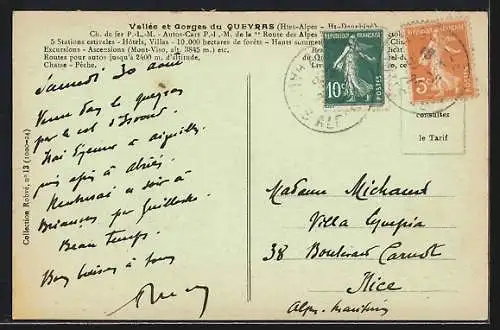 Vallée et Gorges du QUEYRAS (Htes-Alpes
Ch. de fer P.-L.-M. - Autos-Cars P.-L.-M. de la "Route des Alpes
5 Stations estivales - Hôtels, Villas - 10.000 hectares de forêts - Hauts sommets
Excursions - Ascensions (Mont-Viso, alt. 3845 m.) etc.
Routes pour autos jusqu'à 2400 m. d'altitude,
Chasse - Pêche.
10c
POSTES
5c
POSTES
consultez
le Tarif
Collection Robré, n° 13
Samedi 30 août
Venu dans le Queyras
par le col d'Izoard
déjeuner à Aiguilles
puis à Abriès
ce soir à
Briançon par Guillestre
Beau temps.
Bons baisers à tous
Madame Michaud
Villa
38 Boulevard Carnot
Nice
Alpes Maritimes